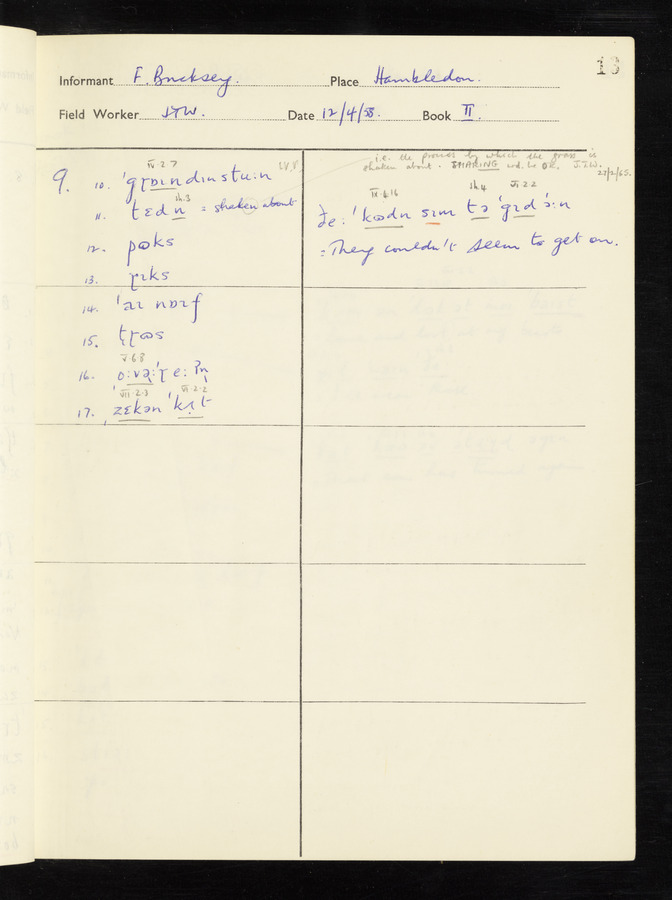 13
Informant F. Bucksey. Place Hambledon.
Field Worker JTW. Date 12/4/58. Book II.
i.e. the process by which the grass is
shaken about. SHAKING wd. be OK. J.T.W.
27/2/65.
IV.2.7
I.V.P
9. 10. ˈgɽɒɪndɪnstuːn
ih.3
11. tɛdn̩ = shaken about
12. pɷks
13. ɽɪks
14. ˈaɪ nɒɪf
15. tɽɷs
V.6.8
16. ɒːvəːɽeːʔn̩
VII.2.3 VI.2.2
17. zɛkən ˈkɪt
IX.4.16 ih.4 VI.2.2
ðeː ˈkɷdn sɪm tə ˈgɪd ˈɔːn
= They couldn't seem to get on.